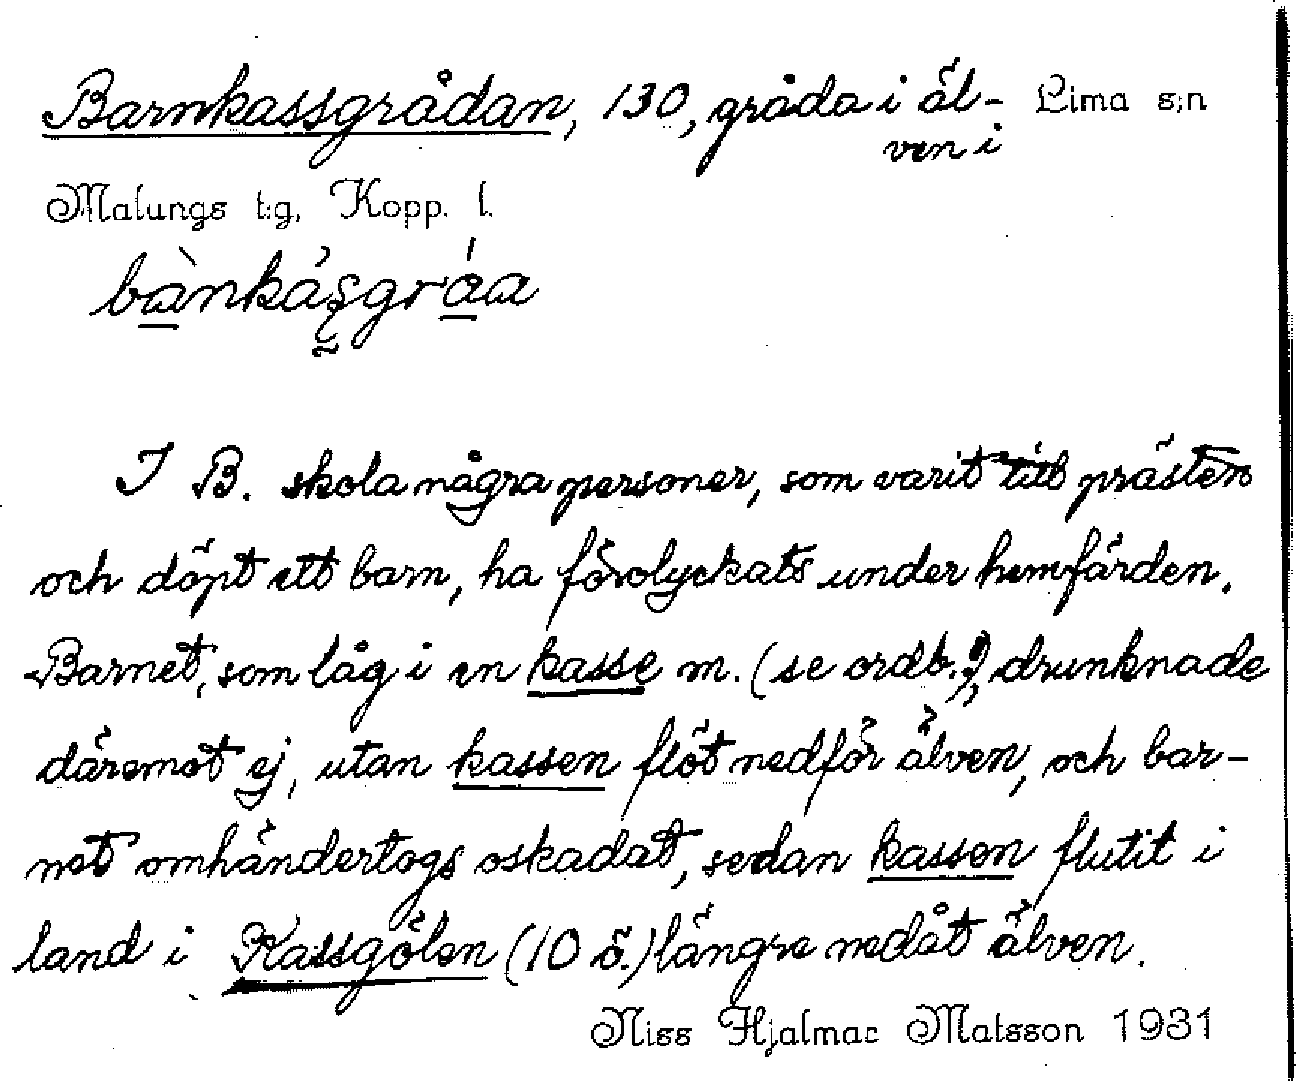 Barnkassgrådan, 130, gråda i äl- Lima s:n
ven i
Malungs t:g, Kopp. l.
I B. skola några personer, som varit till prästen
och döpt ett barn, ha förolyckats under hemfärden.
Barnet, som låg i en kasse m. (se ordb.!), drunknade
däremot ej, utan kassen flöt nedför älven, och bar-
net omhändertogs oskadat, sedan kassen flutit i
land i Kassgölen (10 ö.) längre nedåt älven.
Niss Hjalmar Matsson 1931